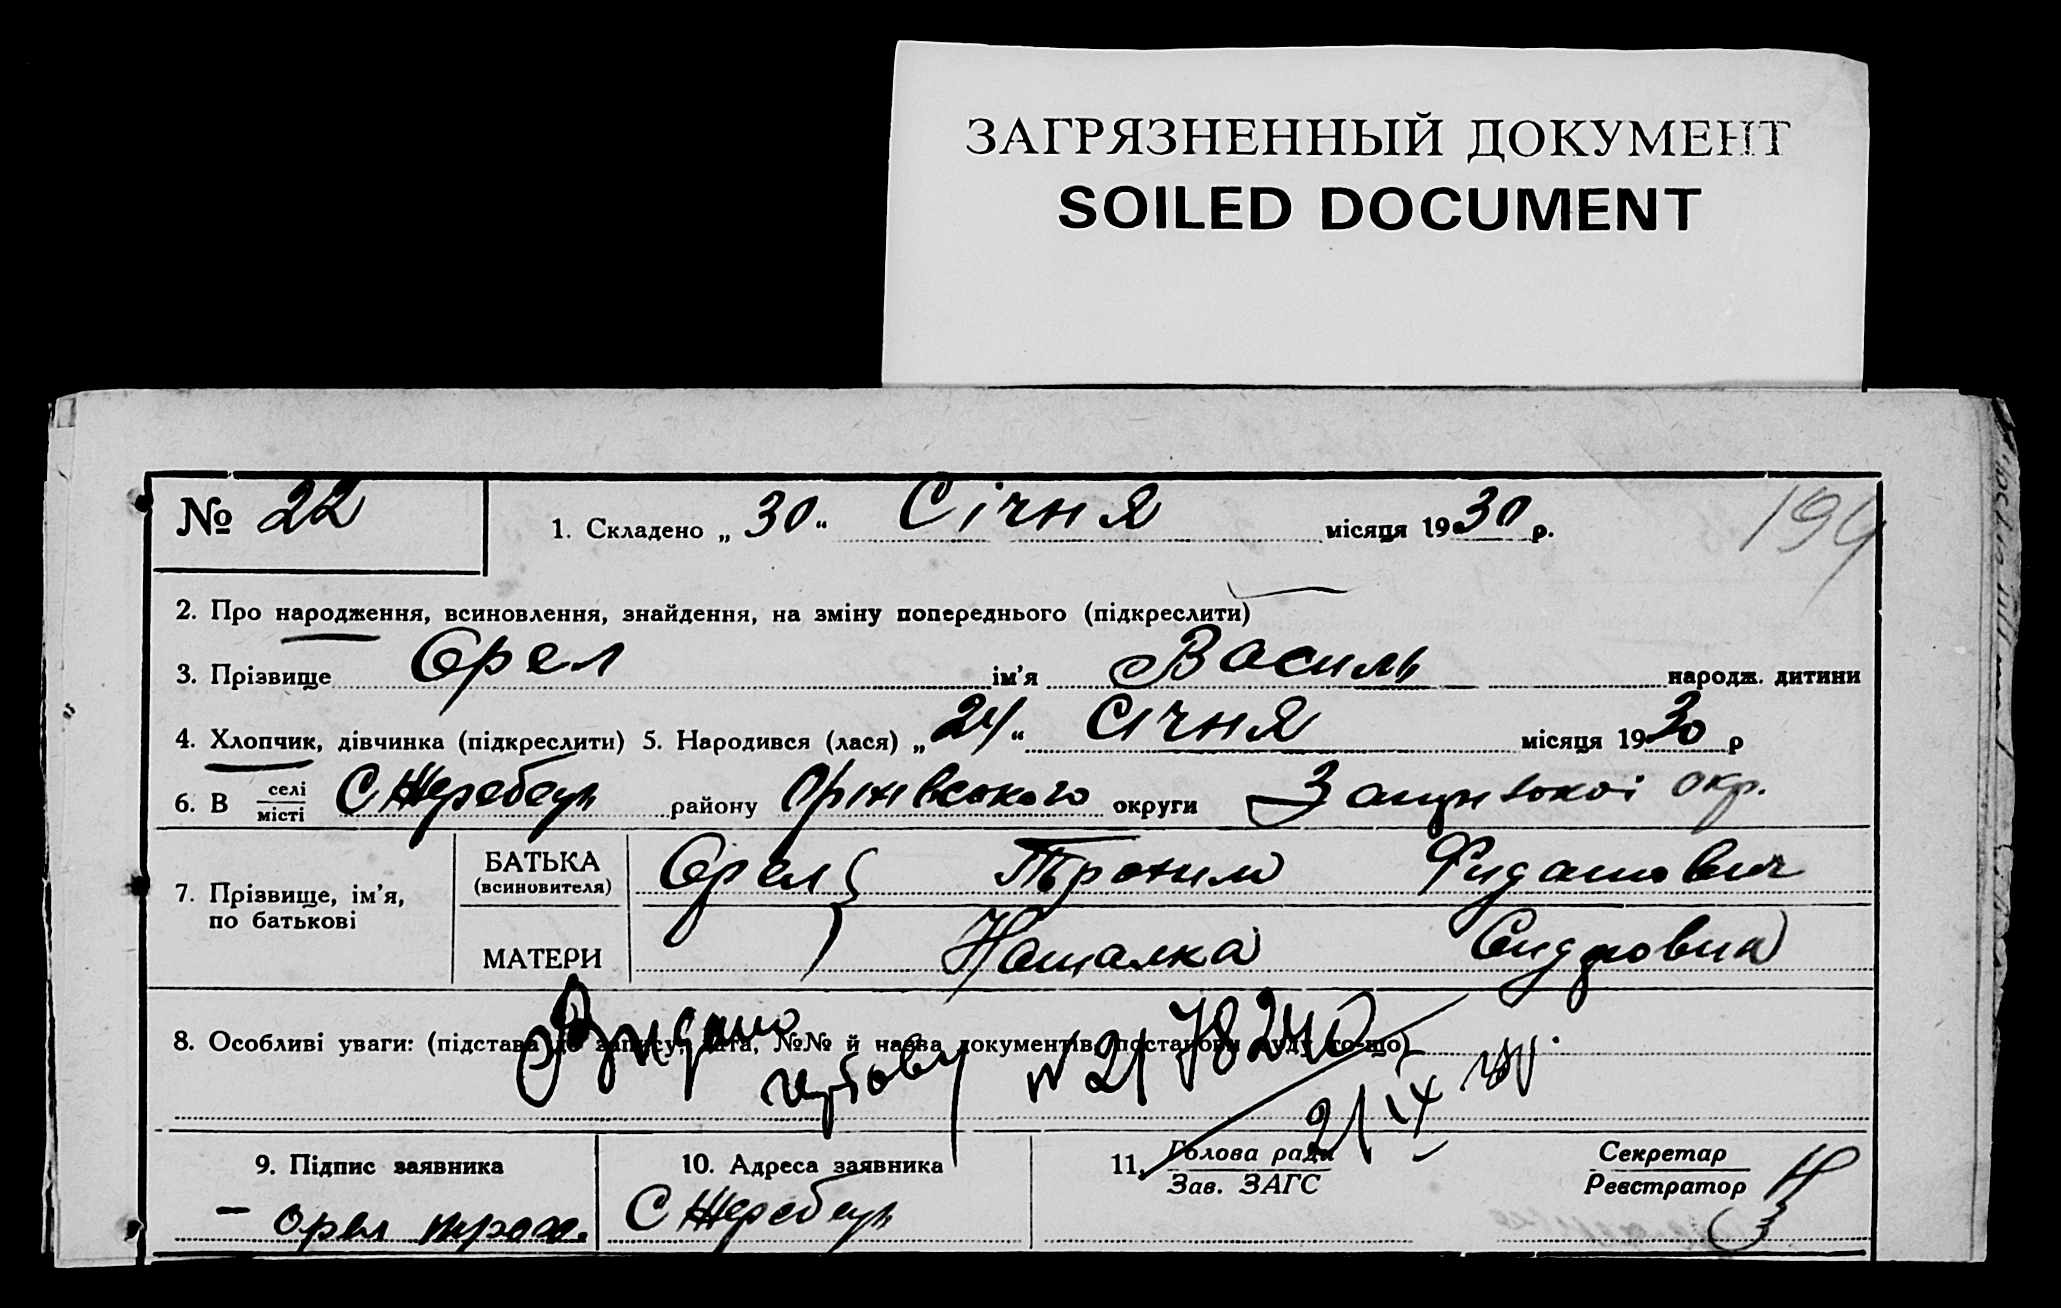 ЗАГРЯЗНЕННЫЙ ДОКУМЕНТ
SOILED DOCUMENT
№ 22
1. Складено „ 30 “ Січня місяця 1930 р.
194
2. Про народження, всиновлення, знайдення, на зміну попереднього (підкреслити)
3. Прізвище Орел ім’я Василь народж. дитини
4. Хлопчик, дівчинка (підкреслити) 5. Народився (лася) „ 24 “ Січня місяця 1930 р
6. В селі місті С Жеребець району Оріхівського округи окр.
7. Прізвище, ім’я, по батькові
БАТЬКА (всиновителя) Орел
МАТЕРИ Наталка Сидоровна
8. Особливі уваги: (підстава до запису, дата, №№ й назва документів, постанови суду то-що)
Видано № 217824
21
9. Підпис заявника
10. Адреса заявника
11. Голова ради
Зав. ЗАГС
Секретар
Реєстратор
Орел Трох.
С Жеребець